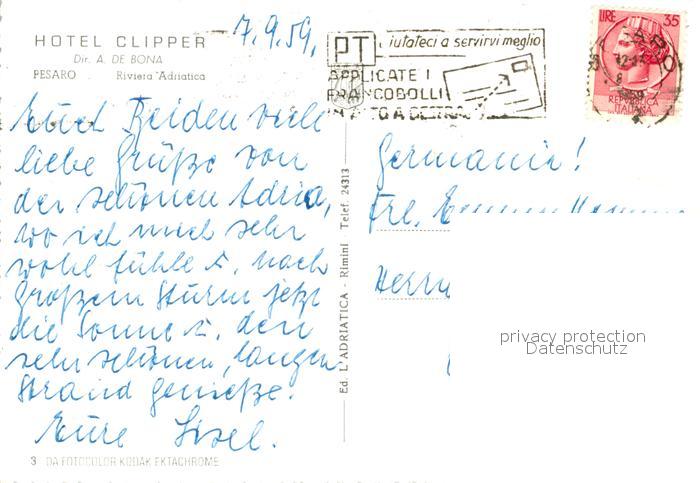 HOTEL CLIPPER
Dir. A. DE BONA
PESARO Riviera Adriatica
7.9.59.
PT iutateci a servirvi meglio
APPLICATE I
FRANCOBOLLI
TO A DESTRA
LIRE 35
REPVBBLICA
ITALIANA
Euch Beiden viele
liebe Grüße von
der schönen Adria,
wo ich mich sehr
wohl fühle u. nach
großem Sturm jetzt
die Sonne u. den
sehr schönen, langen
Strand genieße.
Eure Lisel.
3 DA FOTOCOLOR KODAK EKTACHROME
Ed. L'ADRIATICA - Rimini Telef. 24313
Germania!
Frl.
Herrn
privacy protection
Datenschutz